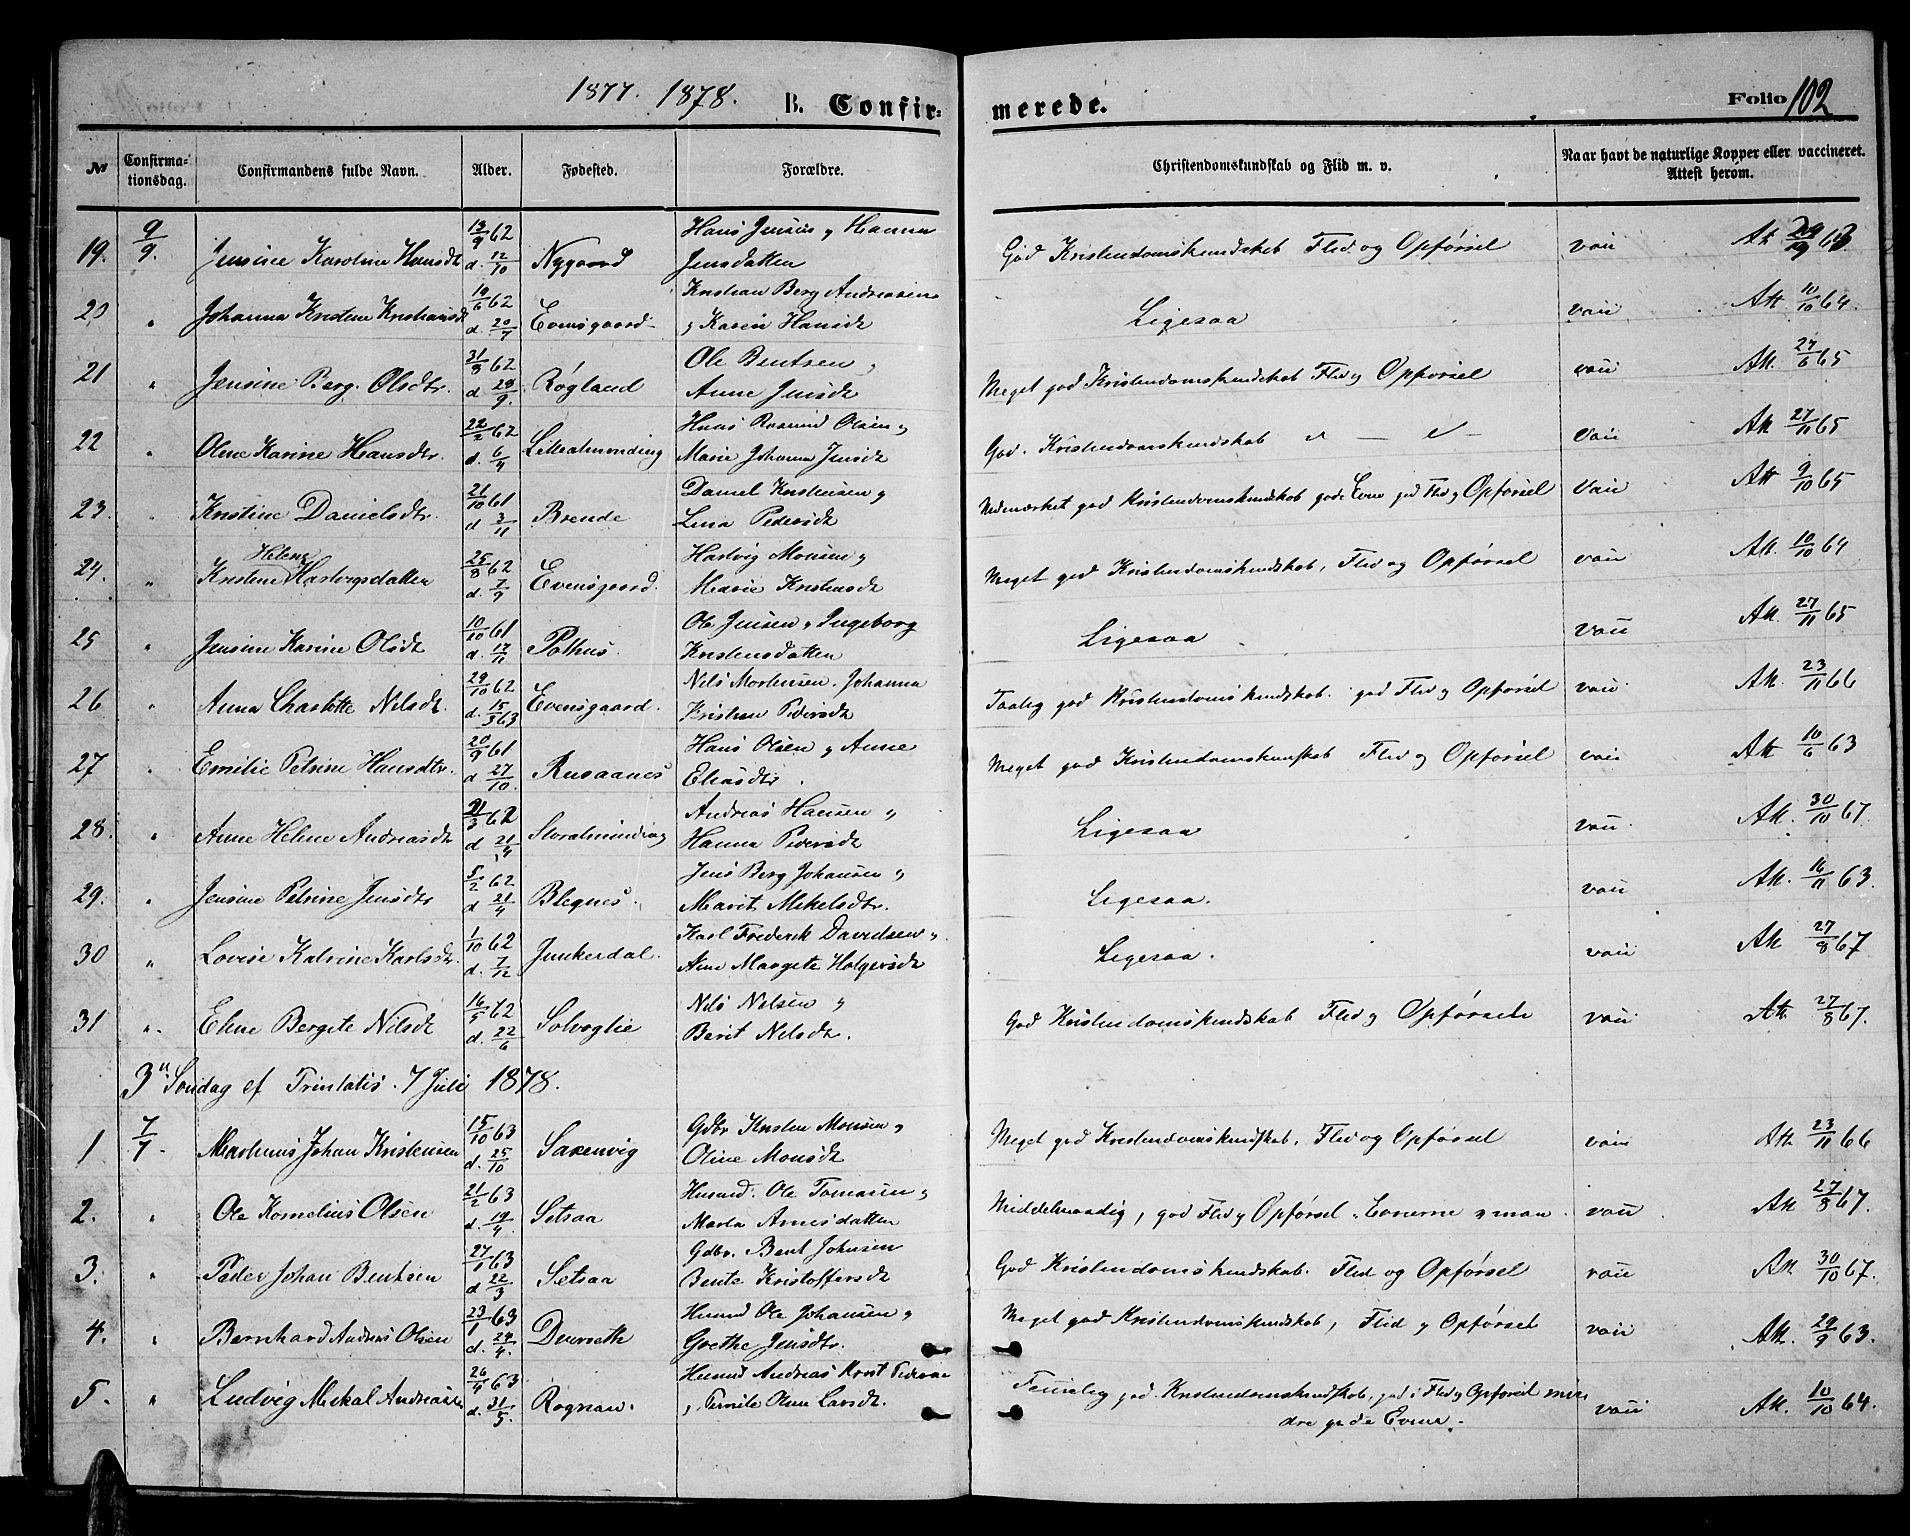 1877. 1878. B. Confir- merede. Folio 102
№ Confirma-tionsdag. Confirmandens fulde Navn. Alder. Fødested. Forældre. Christendomskundskab og Flid m. v. Naar havt de naturlige Kopper eller vaccineret. Attest herom.
19. 9/9. Jensine Karoline Hansdt 13/9 62 d. 12/10 Nygaard Hans Jensen & Hanna Jensdatten God Kristendomskundskab Flid og Opførsel vaii At 29/9 63
20 " Johanna Kristine Kristiansdt 19/6 62 d. 20/7 Evensgaard Kristian Berg Andreasen & Karen Hansdt Ligesaa vaii Att 10/10 64.
21 " Jensine Berg. Olsdtr. 31/8 62 d 29/9. Røgland Ole Bentsen & Anne Jensdt Meget god Kristendomskundskab Flid & Opførsel vaii Att. 27/6 65
22 " Oline Karine Hansdtr. 22/2 62 d. 6/4 Lillealmending Hans Olsen & Marie Johanna Jensdt God. Kristendomskundskab " — " — vaii Att 27/11 65
23. " Kristine Danielsdtr. 21/10 61 d 3/11 Brende Daniel Kristensen & Lena Pedersdt Udmærket god Kristendomskundskab gode Evne god Flid & Opførsel vaii Att 9/10 65
24. " Kristine Helene Hartvigsdatten 25/8 62 d. 7/9 Evensgaard. Hartvig Monsen & Marie Kristiansdt Meget god Kristendomskundskab, Flid og Opførsel vaii Att. 10/10 64
25 " Jensine Karine Olsdt 10/10 61 d. 17/11 Pothus. Ole Jensen & Ingeborg Kristensdatten Ligesaa vaii Att. 27/11 65
26 " Anna Charlotte Nilsdt. 29/10 62 d. 15/3 63 Evensgaard. Nils Mortensen. Johanna Kristine Pedersdt Taalig god Kristendomskundskab. god Flid & Opførsel vaii Att. 23/11 66
27 " Emilie Petrine Hansdtr. 20/9 61 d 27/10. Rusaanes Hans Olsen & Anne Eliasdtr. Meget god Kristendomskundskab Flid & Opførsel vaii Att 10/6 63
28. " Anne Helene Andreasdt 21/3 62 d 21/4 Storalmending Andreas Hansen & Hanna Pedersdt Ligesaa vaii. Att. 30/10 67.
29. " Jensine Petrine Jensdtr 5/2 62 d 21/4 Blegnes. Jens Berg Johansen & Marit Mikelsdtr. Ligesaa. vaii Att. 16/11 63.
30 " Lovise Katrine Karlsdt. 1/10 62 d. 7/12 Junkerdal. Karl Frederik Davidsen & Ane Margete Holgersdt Ligesaa. vaii Att 27/8 67
31 " Eline Bergite Nilsdt 16/5 62 d. 22/6 Solvoglie Nils Nilsen & Berit Nilsdt. God Kristendomskundskab Flid & Opførsel vaii Att. 27/8 67.
3die Søndag ef Trinitatis. 7 Juli 1878.
1 7/7. Martinus Johan Kristensen 15/10 63 d. 25/10 Saxenvig Gdbr Kristen Monsen & Oline Monsdt Meget god Kristendomskundskab, Flid og Opførsel vaii Att 23/11 66
2. " Ole Kornelius Olsen 21/2 63 d. 19/4. Setsaa Husmd. Ole Tomasen & Marta Arnesdatten Middelmaadig, god Flid & Opførsel. Evnerne vaii Att 27/8 67.
3. " Peder Johan Bentsen 27/1 63 d 22/3 Setsaa Gdbr. Bent Johnsen Bente Kristoffersdt God Kristendomskundskab. Flid og Opførsel vaii Att. 30/10 67.
4. " Bernhard Andreas Olsen 23/1 63 d. 24/4. Husmd Ole Johansen & Grethe Jensdtr. Meget god Kristendomskundskab, Flid & Opførsel vaii Att. 29/9 63.
5. " Ludvig Mikal Andreassen 26/4 63 d. 31/5. Rognan. Husmd Andreas Krist Pedersen & Pernile Oline Larsdt. Temelig god. Kristendomskundskab, god Flid & Opførsel min-
dre gode Evner. vaii Att. 10/10 64.